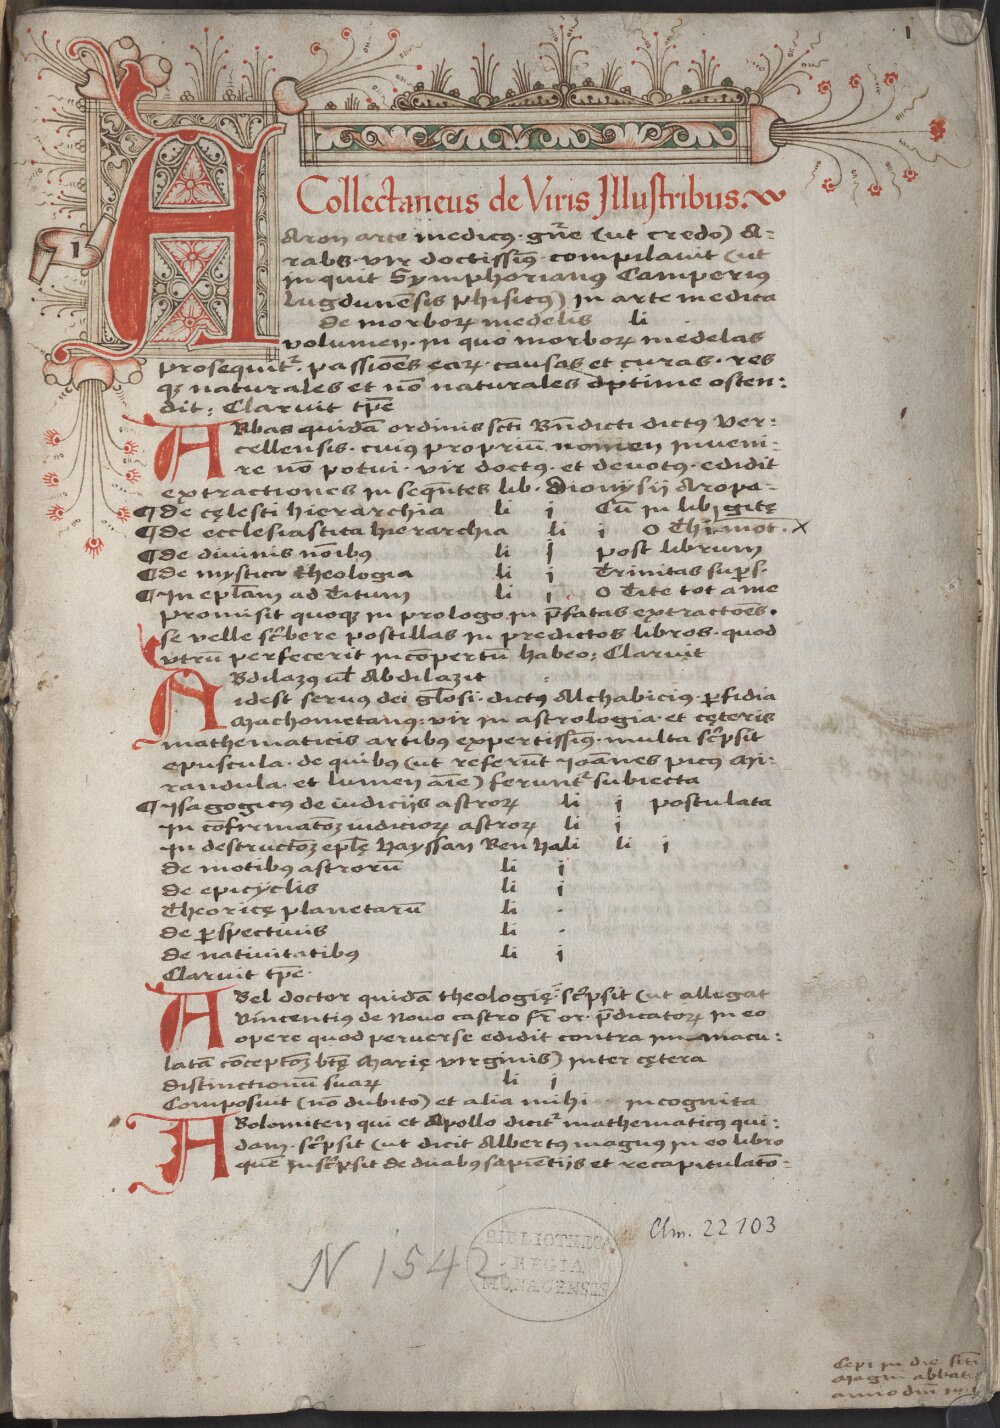 1
1
Collectaneus de Viris Illustribus.
Aaron arte medicus. gñe (ut credo) A=
rabs. vir doctissimꝰ. compilavit (ut
inquit Symphorianꝰ Camperiꝰ
Lugdunēsis phisicꝰ) in arte medica
de morboꝝ medelis li
volumen. in quo morboꝝ medelas
prosequitᷣ. passiōes eaꝝ. causas et curas. res
qꝫ naturales et nō naturales optime osten:
dit: Claruit tp̄e
ABbas quidā ordinis scti Bn̄dicti dictꝰ Ver:
cellensis. cuiꝰ propriū nomen inveni:
re nō potui. vir doctꝰ. et devotꝰ. edidit
extractiones in seqn̄tes lib. Dionysii Aropa-
¶ De cęlesti hierarchia li j Cū in libj gitę
¶ De ecclesiastica hierarchia li j O Thimot. x
¶ De divinis nōibꝰ li j post librum
¶ De mystica theologia li j Trinitas sup̄s.
¶ In eplam ad Titum li j O Tite tot a me
promisit quoqꝫ in prologo in p̄fatas extractōes.
se velle scͥbere postillas in predictos libros. quod
utrū perfecerit incōpertū habeo: Claruit
ABdilazꝰ ul̄ Abdilazit
idest servus dei gl̄osi. dictꝰ Alchabiciꝰ. ꝑfidia
Machometanꝰ. vir in astrologia. et cęteris
mathematicis artibꝰ expertissimꝰ. multa scͥpsit
opuscula. de quibꝰ (ut referūt Joānes picꝰ Mi:
randula. et lumen aīe) feruntᷣ subiecta
¶ Isagogicꝰ de iudiciis astroꝝ li j postulata
In cōfirmatōꝫ iudicioꝝ astroꝝ li j
In destructōꝫ epl̄ę Hayssan Ben Hali li j
de motibus astrorū li j
de epicyclis li j
Theoricę planetarū li .
de ꝑspectivis li .
de nativitatibꝰ li j
Claruit tp̄e.
ABel doctor quidā theologię. scͥpsit (ut allegat
Vincentiꝰ de Novo castro fr̄ or. p̄dicatoꝝ in eo
opere quod perverse edidit contra immacu:
latā cōceptōꝫ btę Marię virginis) inter cętera
distinctionū suaꝝ li j
Composuit (nō dubito) et alia mihi incognita
ABolomiten qui et Apollo dicitᷣ mathematicꝰ qui:
dam. scͥpsit (ut dicit Albertꝰ magnꝰ in eo libro
quē inscͥpsit de duabꝰ sapientiis et recapitulatō-
Clm. 22103
N 1542
BIBLIOTHECA
REGIA
MONACENSIS
Cepi in die scti
Magni abbatis
anno dm̄